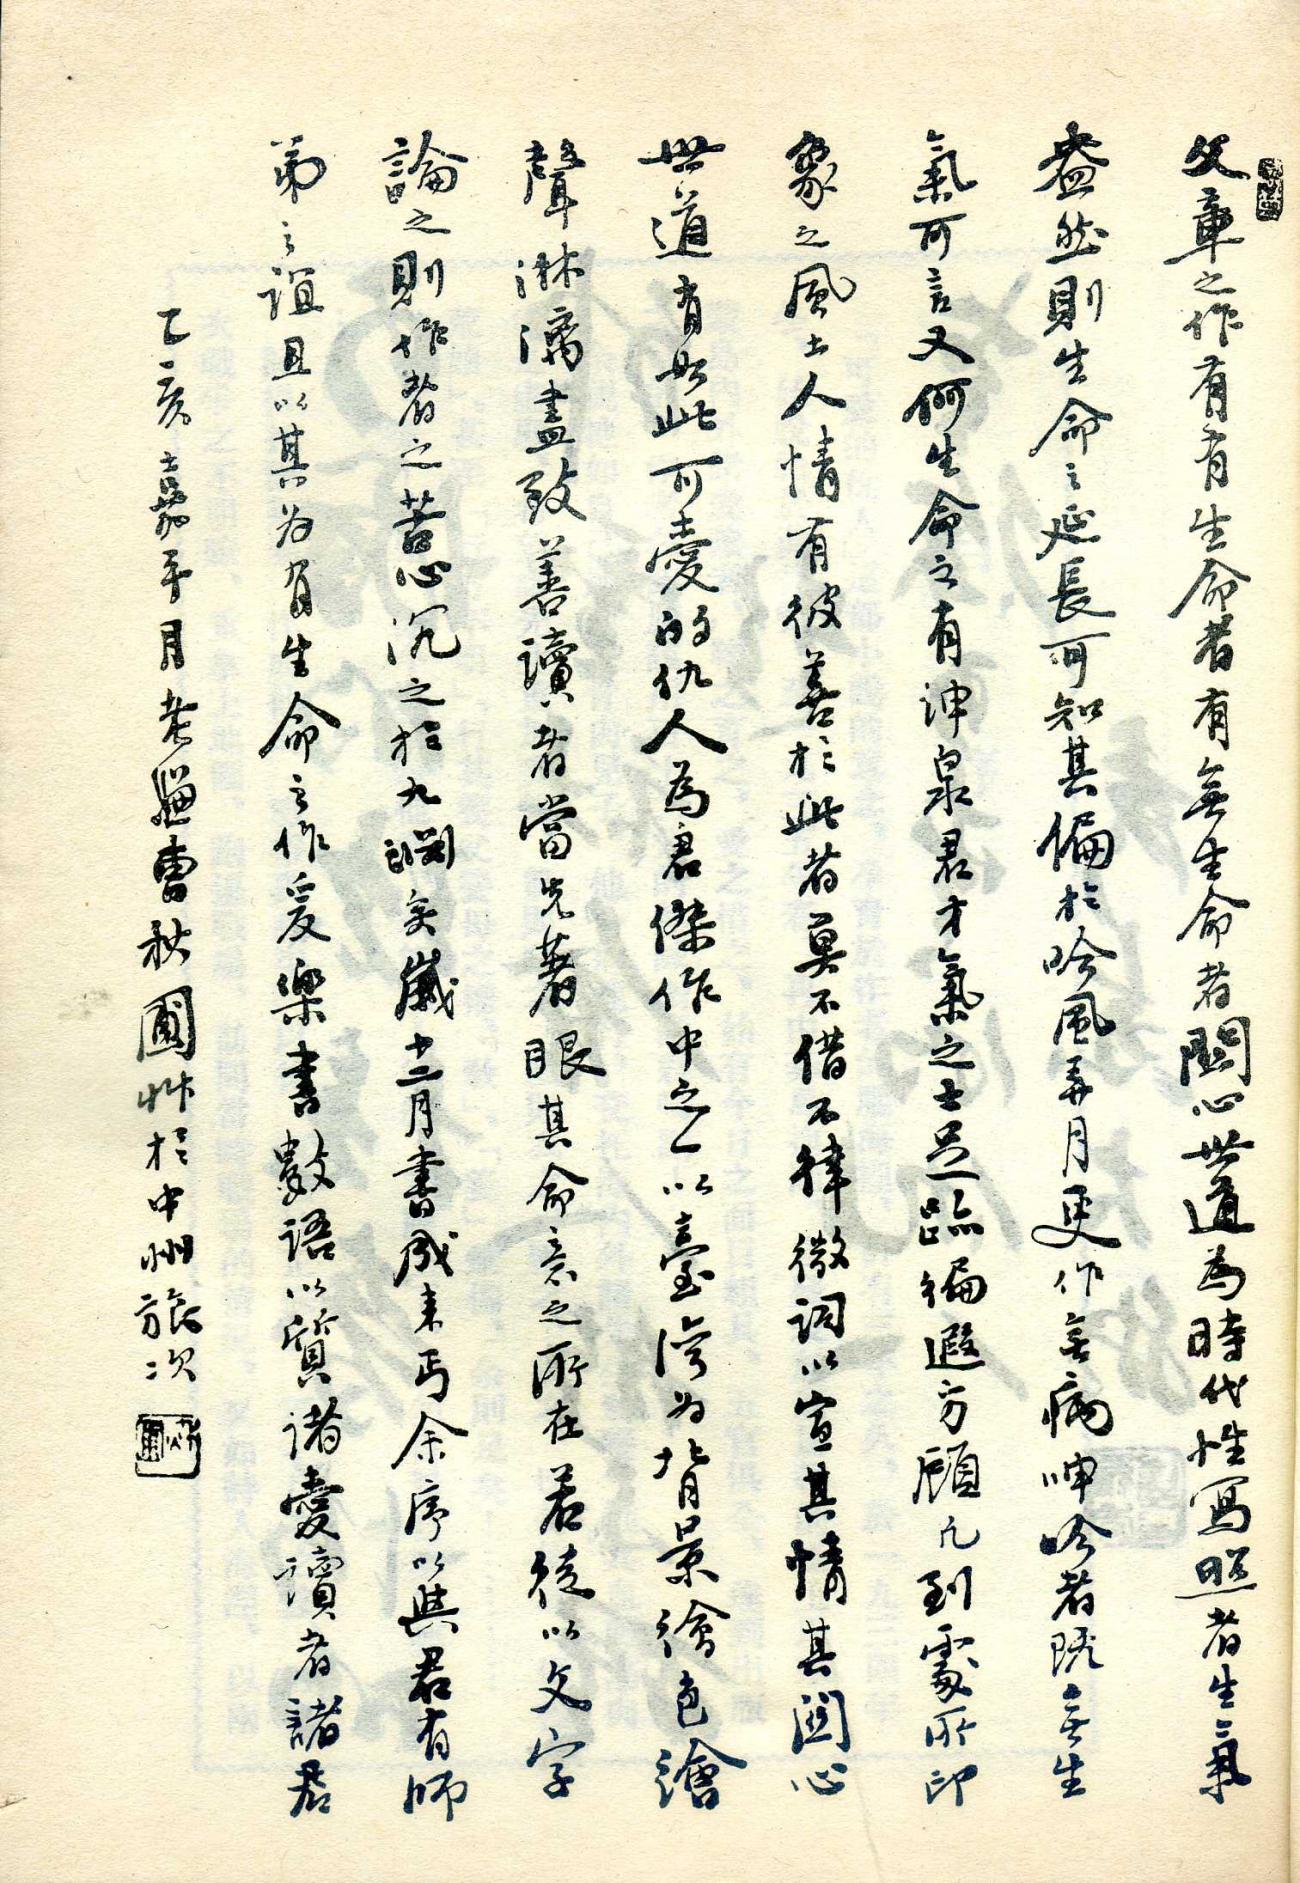 文章之作有有生命者有無生命者關心世道為時代性寫照者生氣
盎然則生命之延長可知其偏於吟風弄月更作無病呻吟者既無生
氣可言又何生命之有沖泉君才氣之士足跡徧遐方顧凡到處所印
象之風土人情有彼善於此者莫不借不律微詞以宣其情其關心
世道有如此可愛的仇人為君傑作中之一以臺灣為背景繪色繪
聲淋漓盡致善讀者當先著眼其命意之所在若徒以文字
論之則作者之苦心沉之於九淵矣歲十二月書成來丐余序以與君有師
弟之誼且以其為有生命之作爰樂書數語以質諸愛讀者諸君
乙亥嘉平月老嫌曹秋圃艸於中州旅次